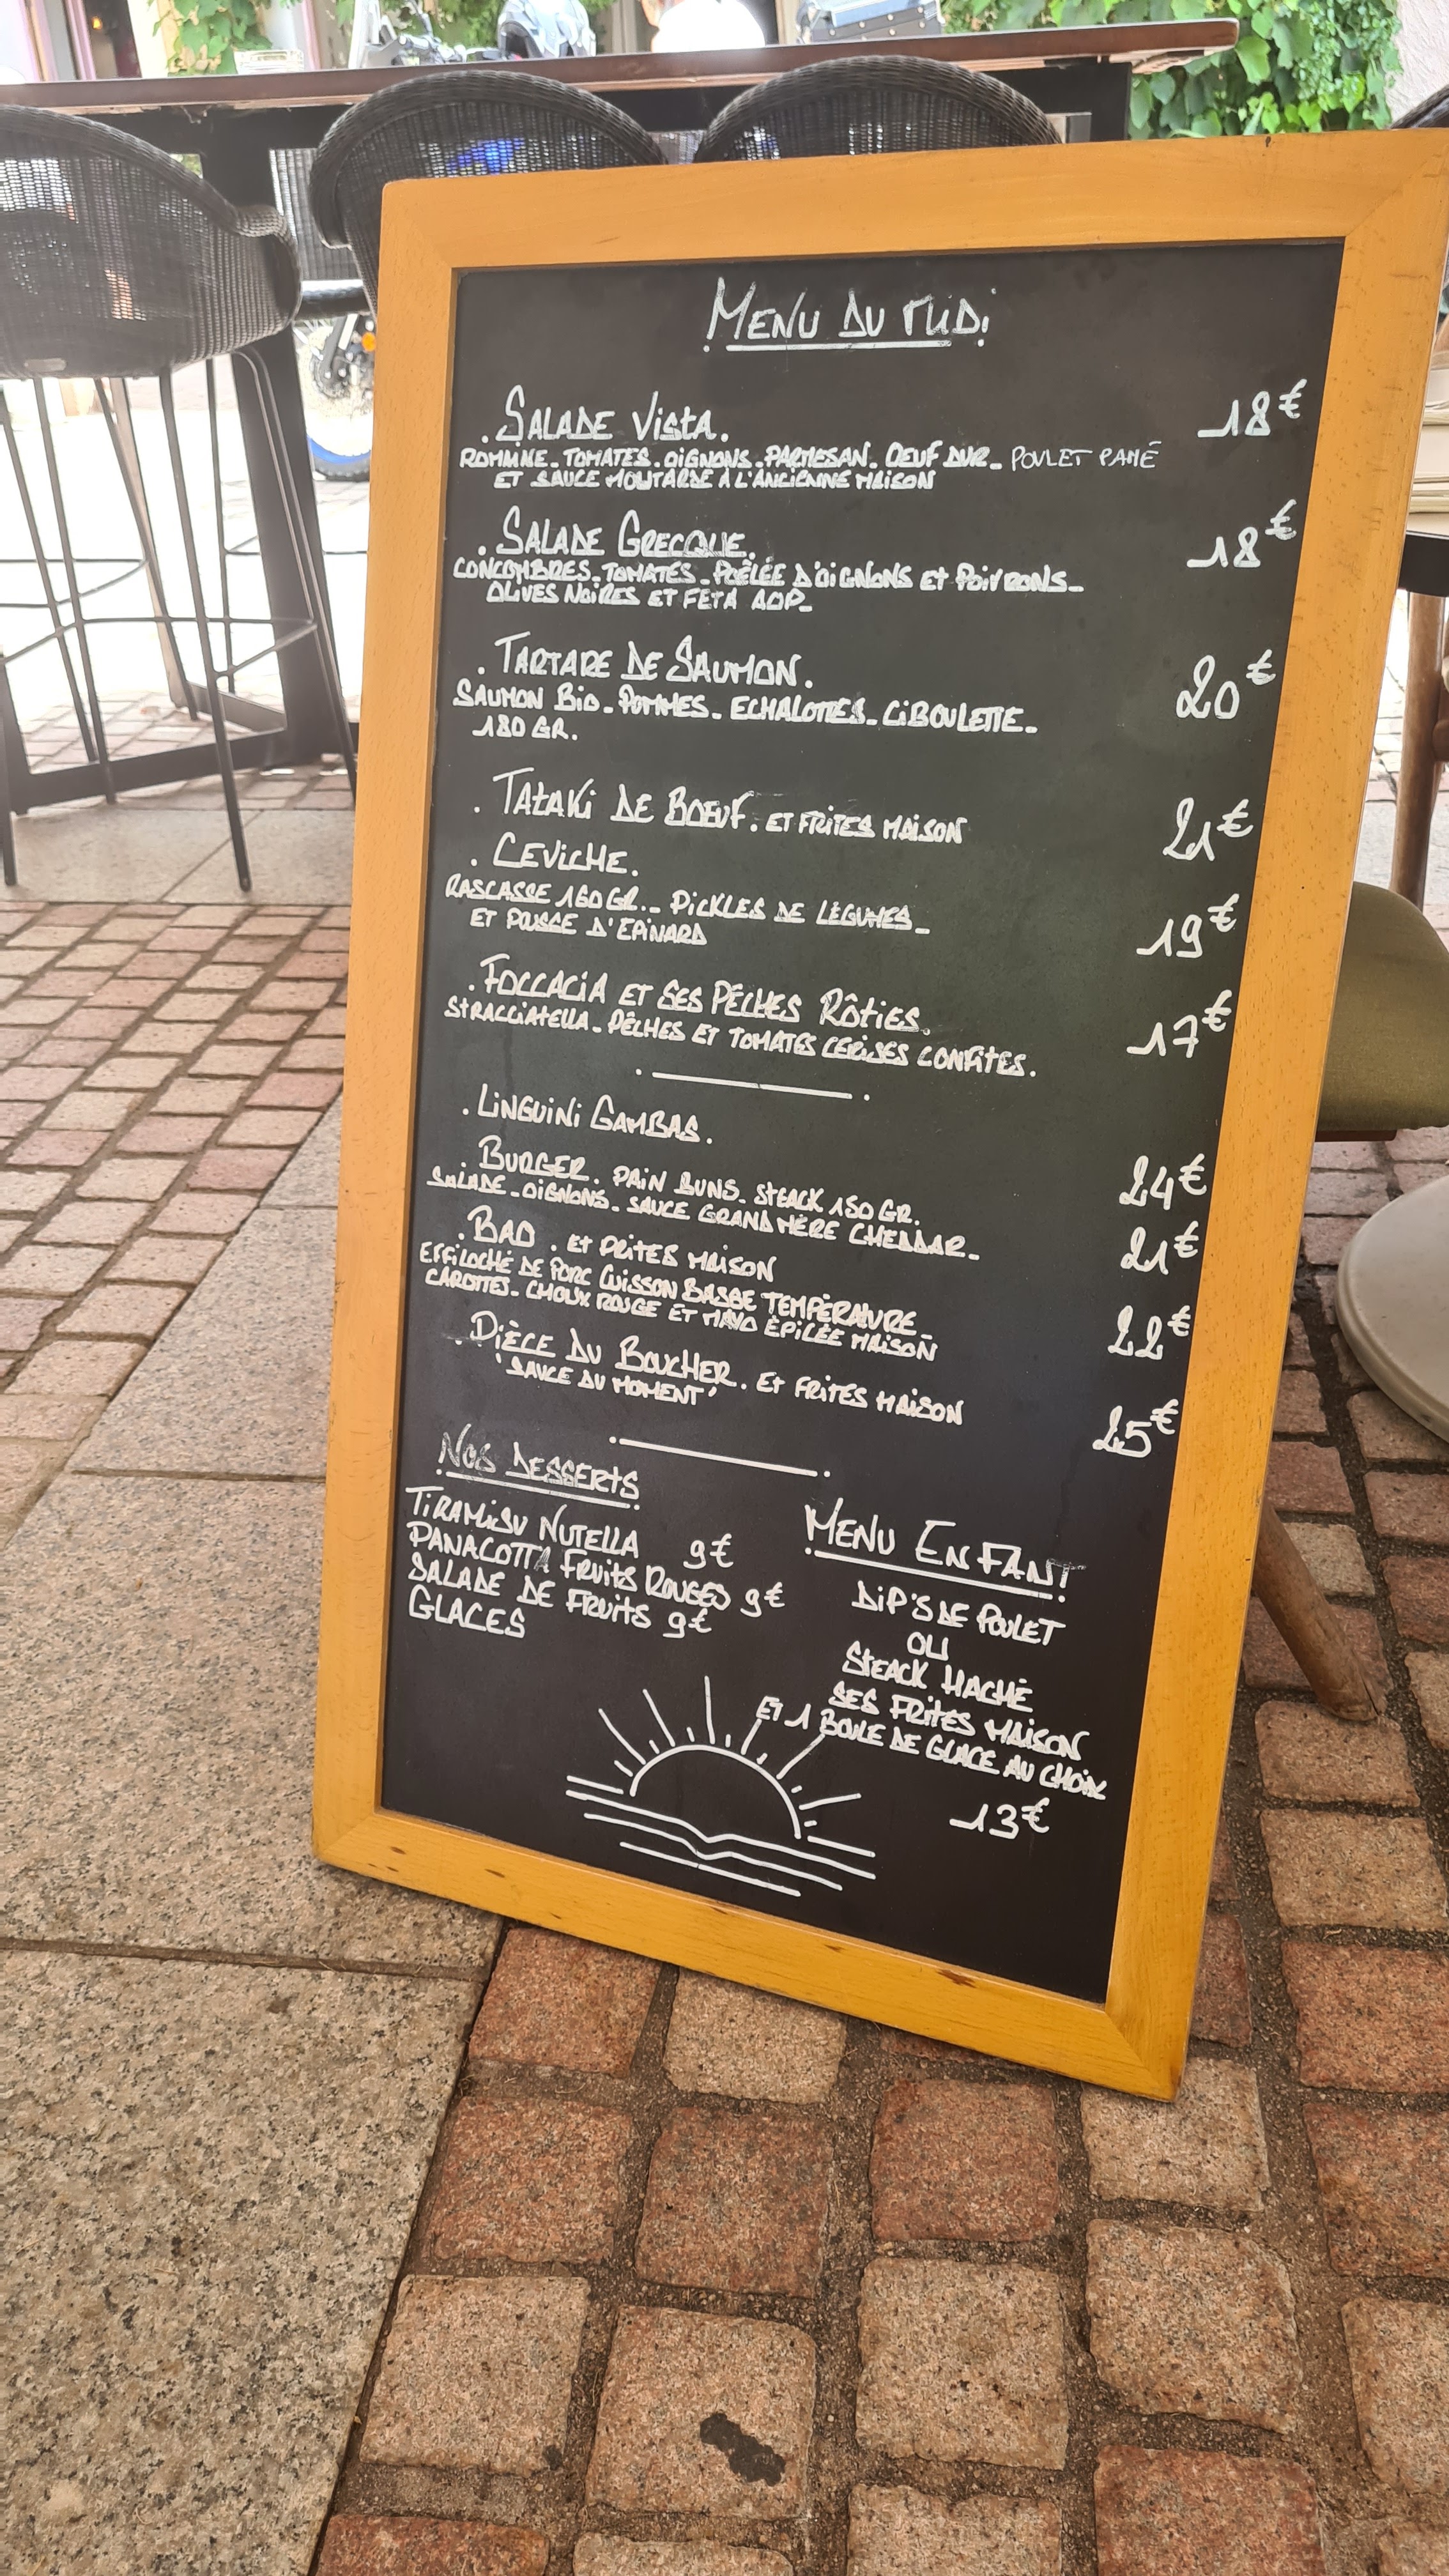 MENU DU MIDI
. SALADE VISTA. 18€
ROMAINE - TOMATES - OIGNONS - PARMESAN - OEUF DUR - POULET PANÉ
ET SAUCE MOUTARDE A L'ANCIENNE MAISON
. SALADE GRECQUE. 18€
CONCOMBRES - TOMATES - POÊLÉE D'OIGNONS ET POIVRONS -
OLIVES NOIRES ET FETA AOP -
. TARTARE DE SAUMON. 20€
SAUMON BIO - POMMES - ECHALOTTES - CIBOULETTE -
180 GR.
. TATAKI DE BOEUF. ET FRITES MAISON 21€
. CEVICHE. 19€
RASCASSE 160 GR. - PICKLES DE LÉGUMES -
ET POUSSE D'EPINARD
. FOCCACIA ET SES PÊCHES RÔTIES. 17€
STRACCIATELLA - PÊCHES ET TOMATES CERISES CONFITES.
. LINGUINI GAMBAS. 24€
. BURGER. PAIN BUNS - STEACK 150 GR. 21€
SALADE - OIGNONS - SAUCE GRAND MÈRE CHEDDAR -
. BAO . ET FRITES MAISON 22€
EFFILOCHÉ DE PORC CUISSON BASSE TEMPÉRATURE -
CAROTTES - CHOUX ROUGE ET MAYO ÉPICÉE MAISON
. PIÈCE DU BOUCHER. ET FRITES MAISON 25€
'SAUCE DU MOMENT'
NOS DESSERTS
TIRAMISU NUTELLA 9€
PANACOTTA FRUITS ROUGES 9€
SALADE DE FRUITS 9€
GLACES
MENU ENFANT
DIP'S DE POULET
OU
STEACK HACHÉ
SES FRITES MAISON
ET 1 BOULE DE GLACE AU CHOIX
13€